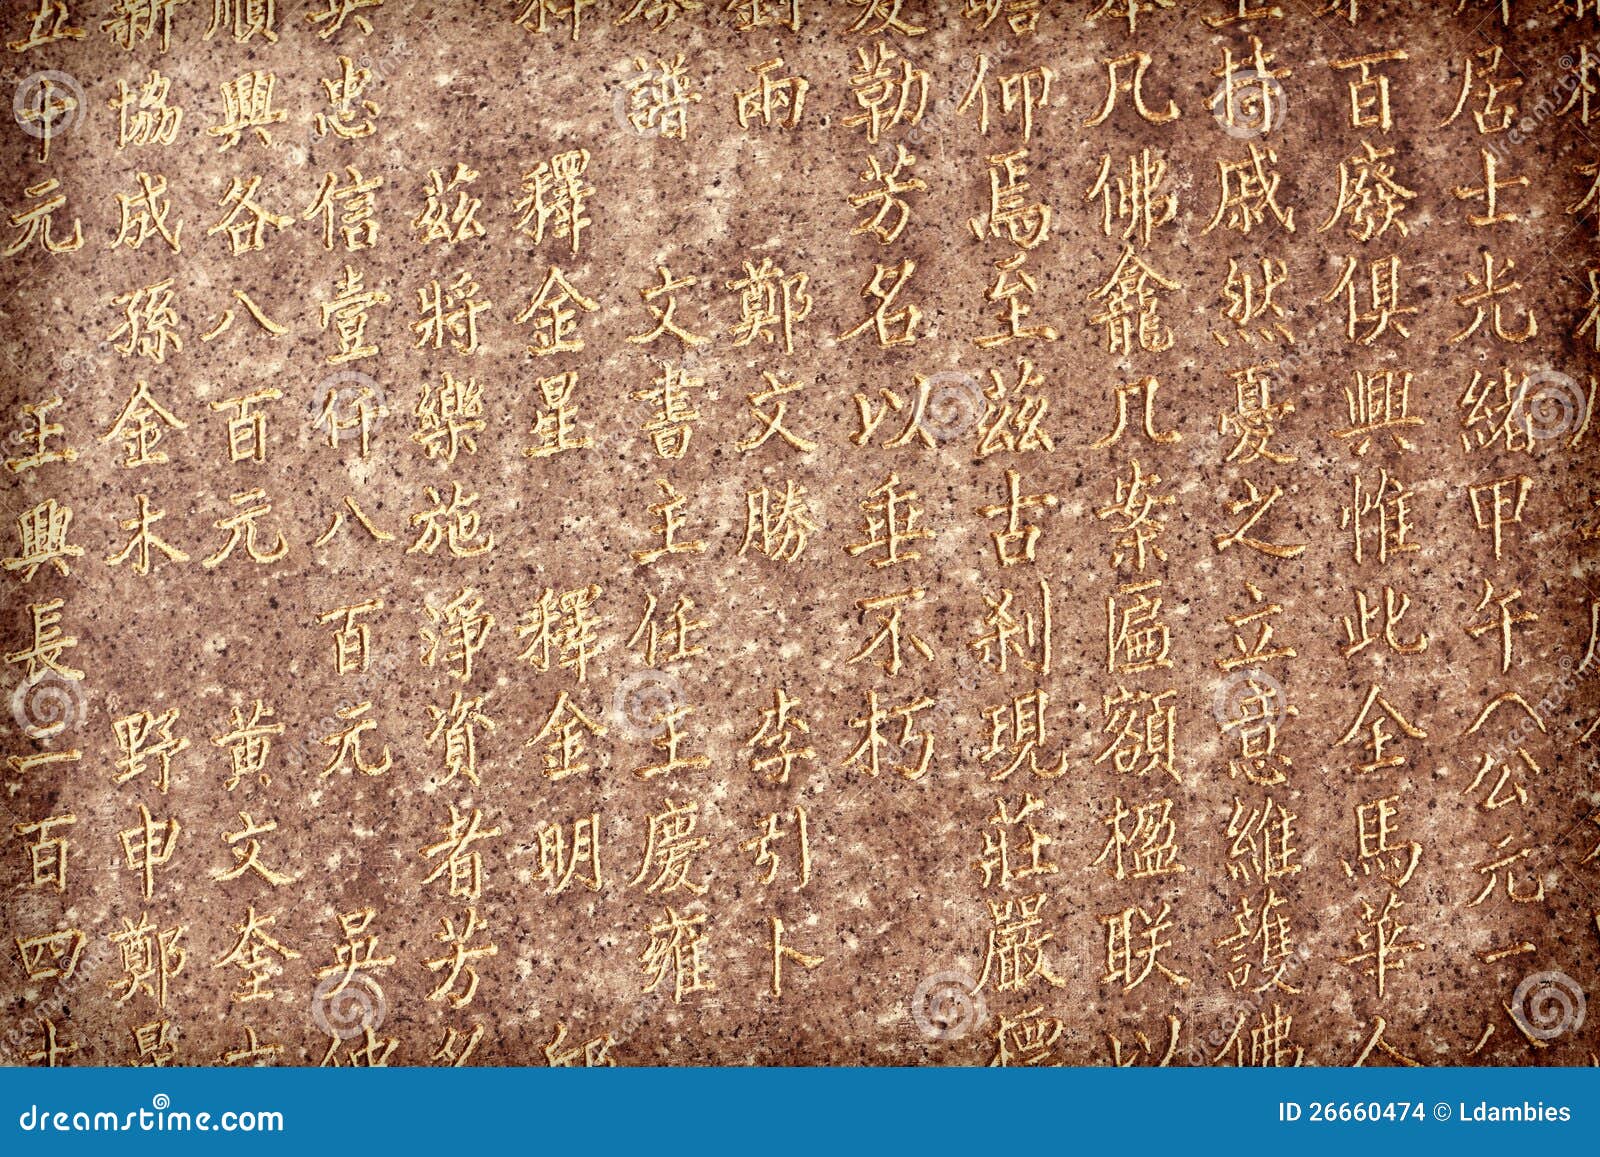 居士光緒甲午(公元一八
百廢俱興惟此全馬華人
持戚然憂之立意維護佛
本凡佛龕几案匾額楹联以
仰焉至茲古剎現莊嚴
爰勒芳名以垂不朽
劉雨 鄭文勝 李引卜
譜 文書主任 王慶雍
釋金星 釋金明 邱
茲將樂施淨資者芳名
英忠信壹仟八百元 吳仲
順興各八百元 黃文奎
新協成孫金木 野申鄭
五中元 王興長二百四十
dreamstime.com
ID 26660474 © Ldambies